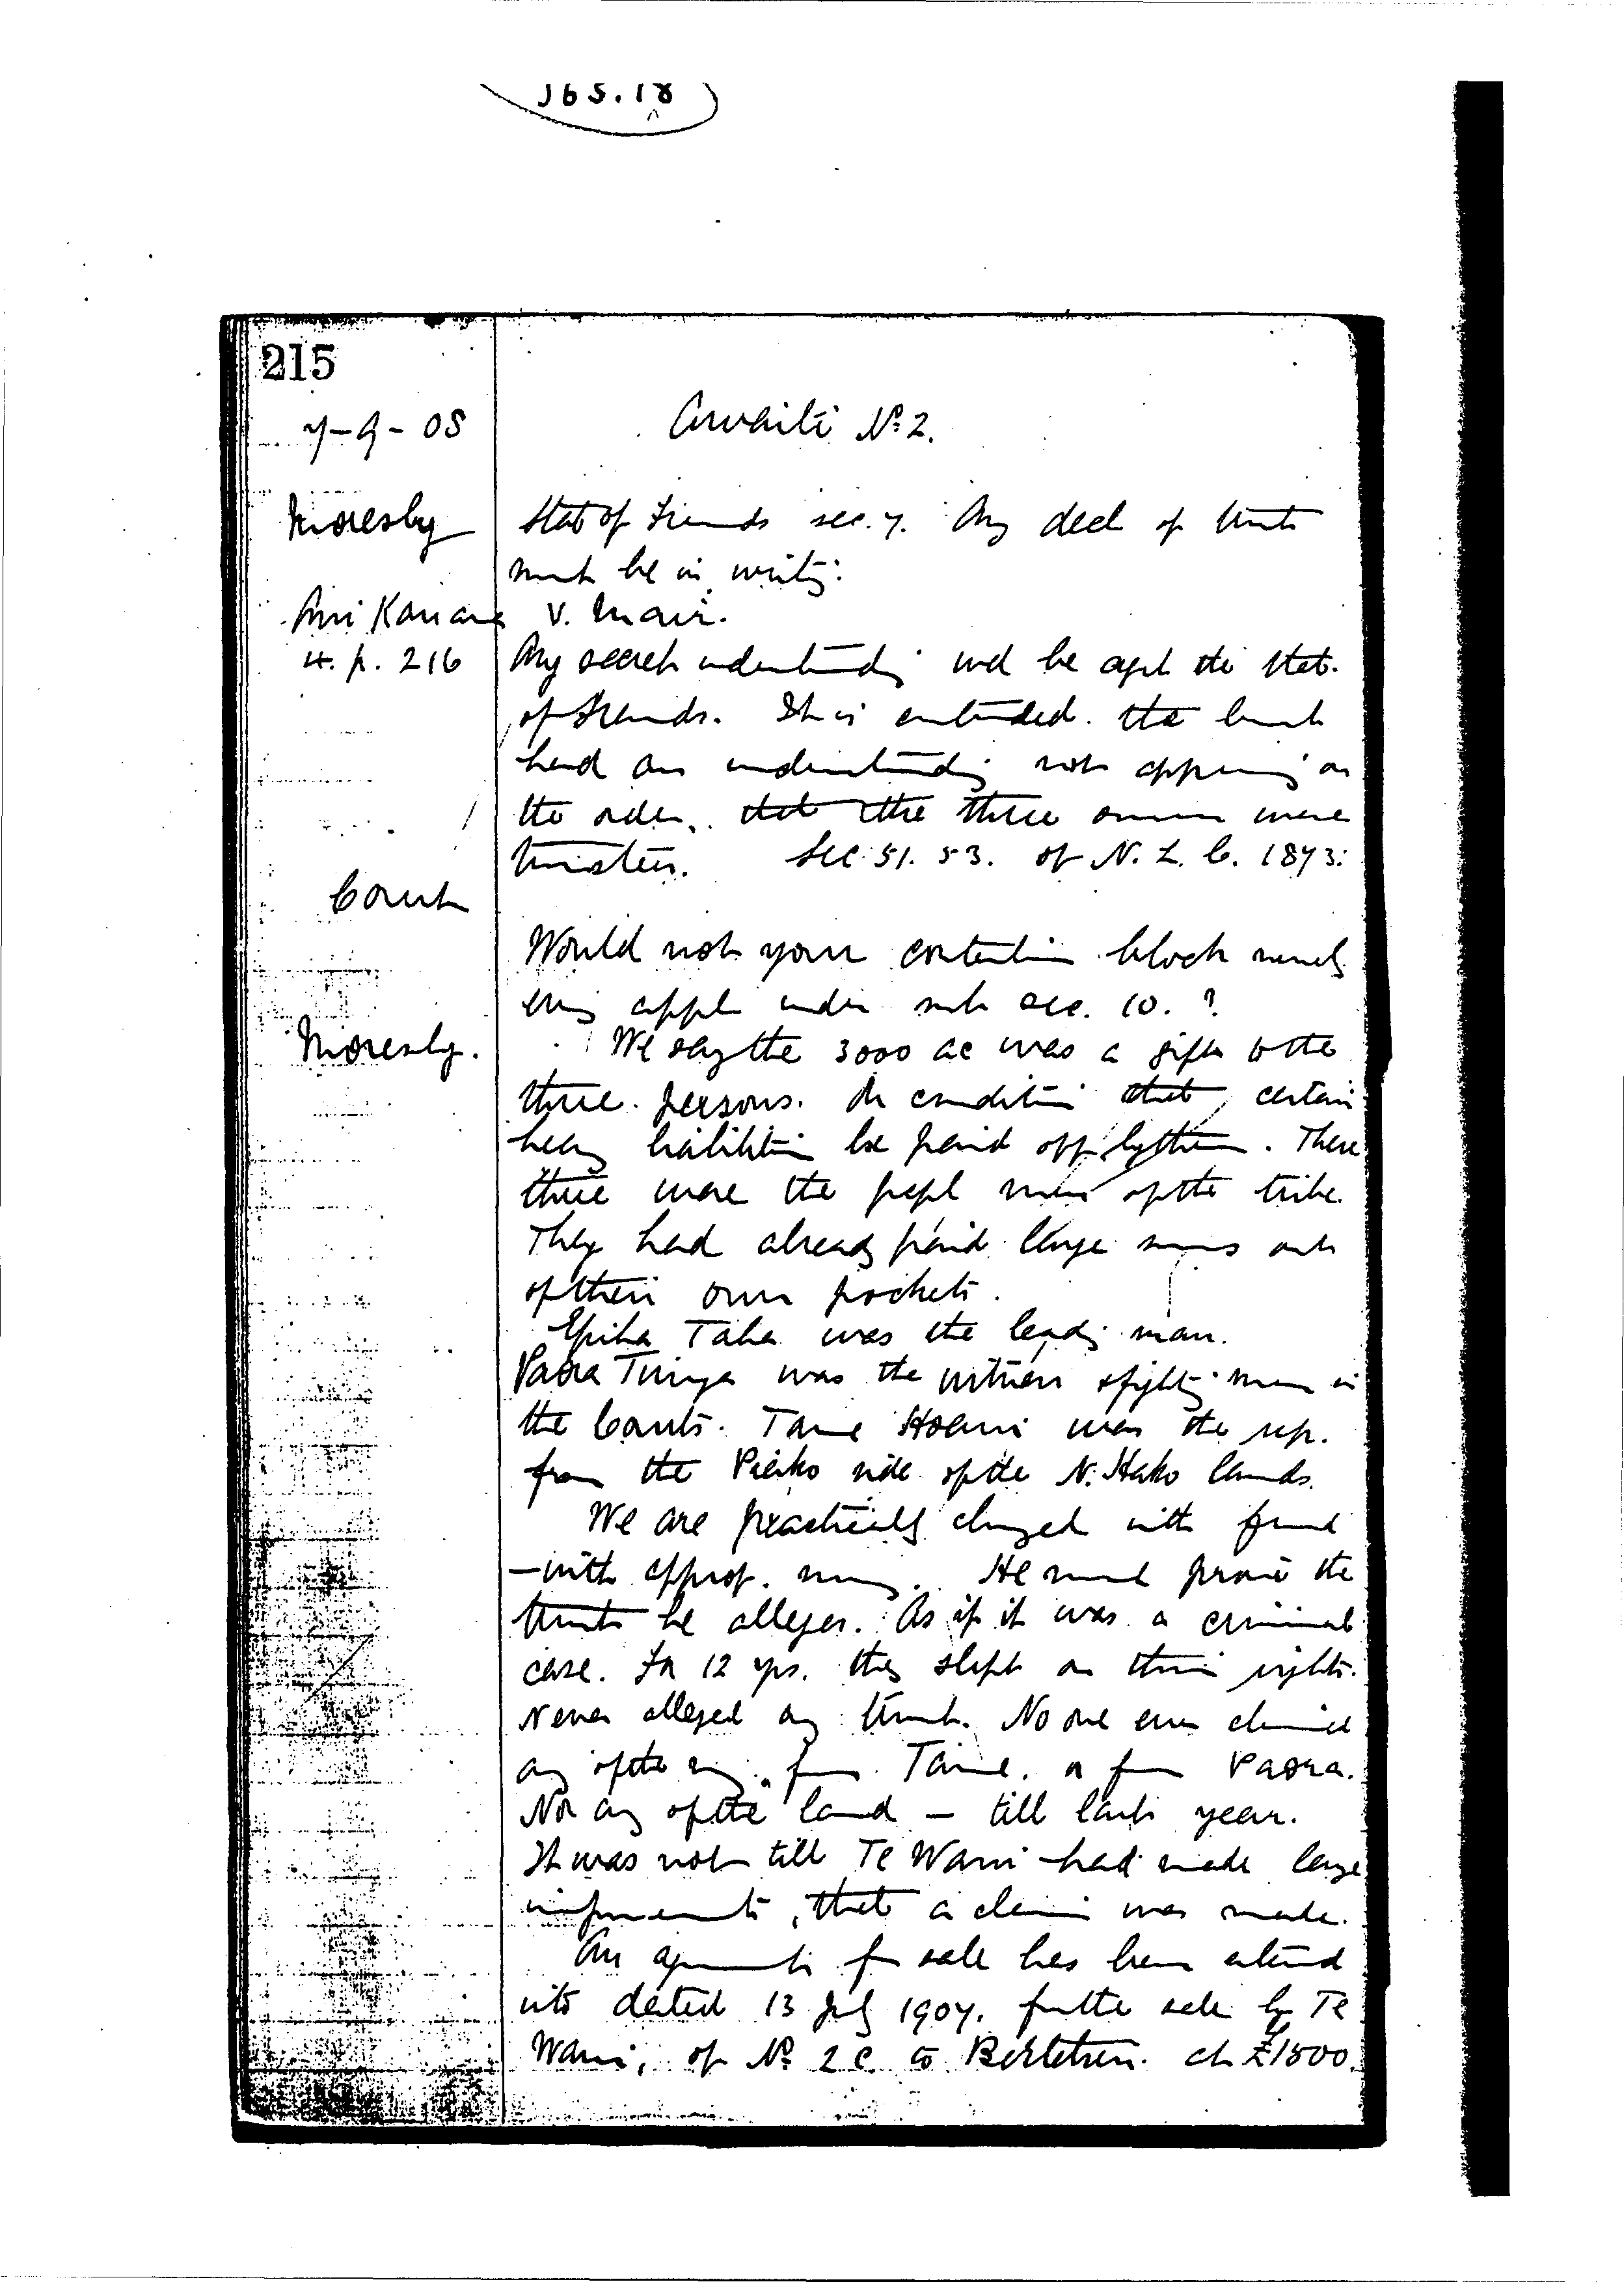 J65.18
215
7-9-08
Awaiti No 2.
Moresby
Stat of Frauds sec. 7. Any decl of trust
must be in writg.
Ani Kanara v. Mair.
4. p. 216
Any secret understandg wd be agst the Stat.
of Frauds. It is contended. the Court
had an understandg not appearing on
the order, that the three owners were
trustees. Sec 51. 53. of N. L. C. 1873.
Court
Would not your contention block nearly
every appl under sub sec. 10. ?
Moresby.
We say the 3000 ac was a gift to the
three persons. On condition that certain
heavy liabilities be paid off by them. These
three were the men of the tribe.
They had already paid large sums out
of their own pockets.
Epiha Taha was the leadg man.
Paora Tiunga was the witness & fightg man in
the Courts. Tame Hoani was the rep.
from the Piako side of the N. Hako lands.
We are practically charged with fraud
- with approp. money. He must prove the
trust he alleges. As if it was a criminal
case. For 12 yrs. they slept on their rights.
Never alleged any trust. No one ever claimed
any of the money from Taine. or from Paora.
Nor any of the land - till last year.
It was not till Te Wani had made large
improvements, that a claim was made.
An agreement for sale has been entered
into dated 13 July 1907. for the sale by Te
Wani, of No 2C to at £1500.